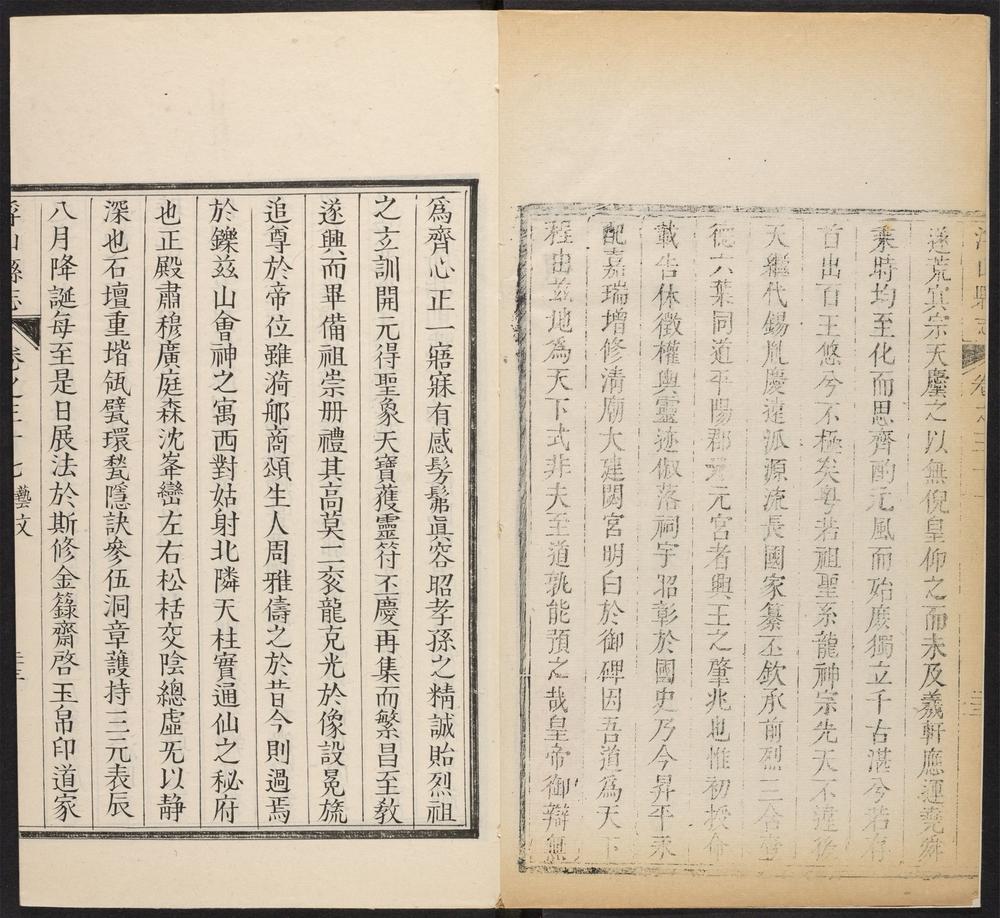 遂荒寘宗天廛之以無倪皇仰之而未及羲軒應運堯舜
乘時均至化而思齊酌元風而殆庶獨立千古湛兮若存
首出百王悠兮不極矣粵若祖聖系龍神宗先天不違後
天繼代錫胤慶遠派源流長國家纂丕欽承前烈三合
德六葉同道平陽郡元宮者興王之肇兆也惟初授命
載告休徵權輿靈迹俶落祠宇昭彰於國史乃今昇平永
配嘉瑞增修清廟大建閟宮明白於御碑因吾道為天下
程出茲地為天下式非夫至道孰能預之哉皇帝御辯無
為齊心正一寤寐有感髣髴眞容昭孝孫之精誠貽烈祖
之玄訓開元得聖象天寶蒦靈符丕慶再集而繁昌至教
遂興而畢備祖崇冊禮其高莫二袞龍克光於像設冕旒
追尊於帝位雖漪郍商頌生人周雅儔之於昔今則過焉
於鑠茲山會神之寓西對姑射北隣天柱實通仙之秘府
也正殿肅穆廣庭森沈峯巒左右松栝交陰總虛旡以靜
深也石壇重堦瓴甓環甃隱訣參伍洞章護持三元表辰
八月降誕每至是日展法於斯修金籙齋啓玉帛印道家
浮山縣志 卷之三十七 藝文 三